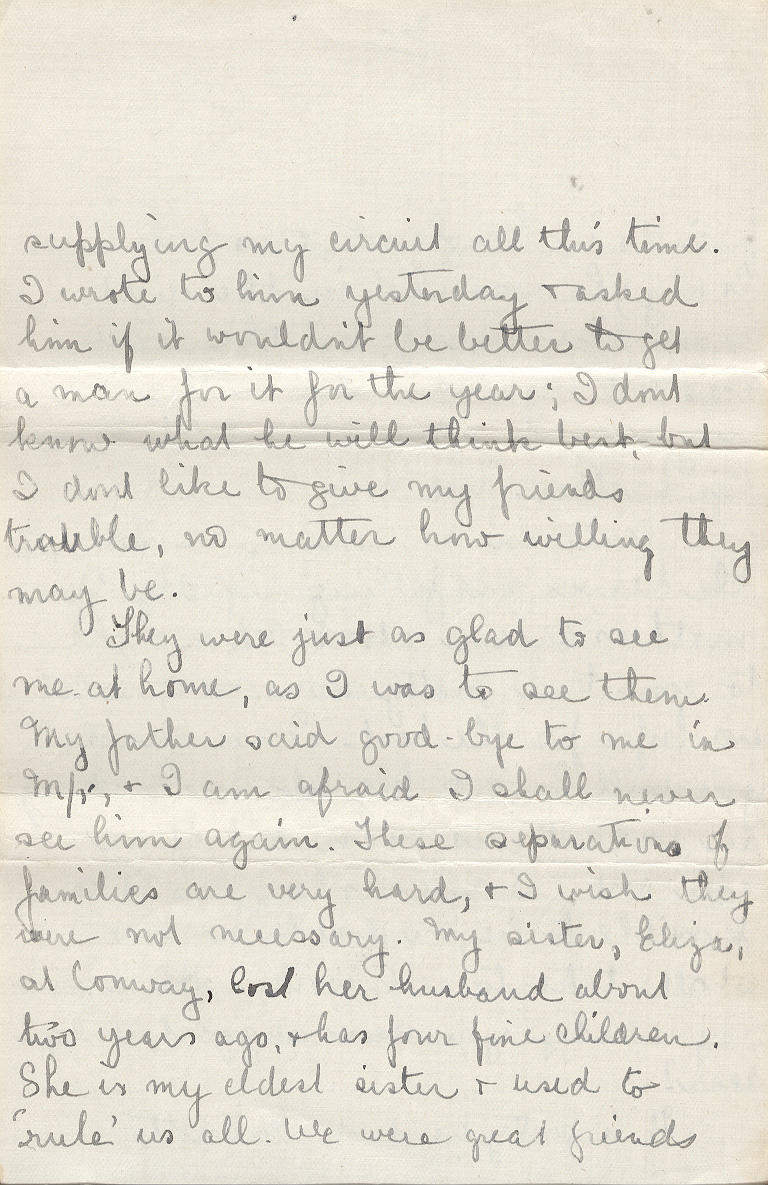 supplying my circuit all this time.
I wrote to him yesterday + asked
him if it wouldn't be better to get
a man for it for the year; I dont
know what he will think best, but
I dont like to give my friends
trouble, no matter how willing they
may be.
They were just as glad to see
me at home, as I was to see them.
My father said good-bye to me in
M/r, + I am afraid I shall never
see him again. These separations of
families are very hard, + I wish they
were not necessary. My sister, Eliza,
at Conway, lost her husband about
two years ago, + has four fine children.
She is my eldest sister + used to
'rule' us all. We were great friends